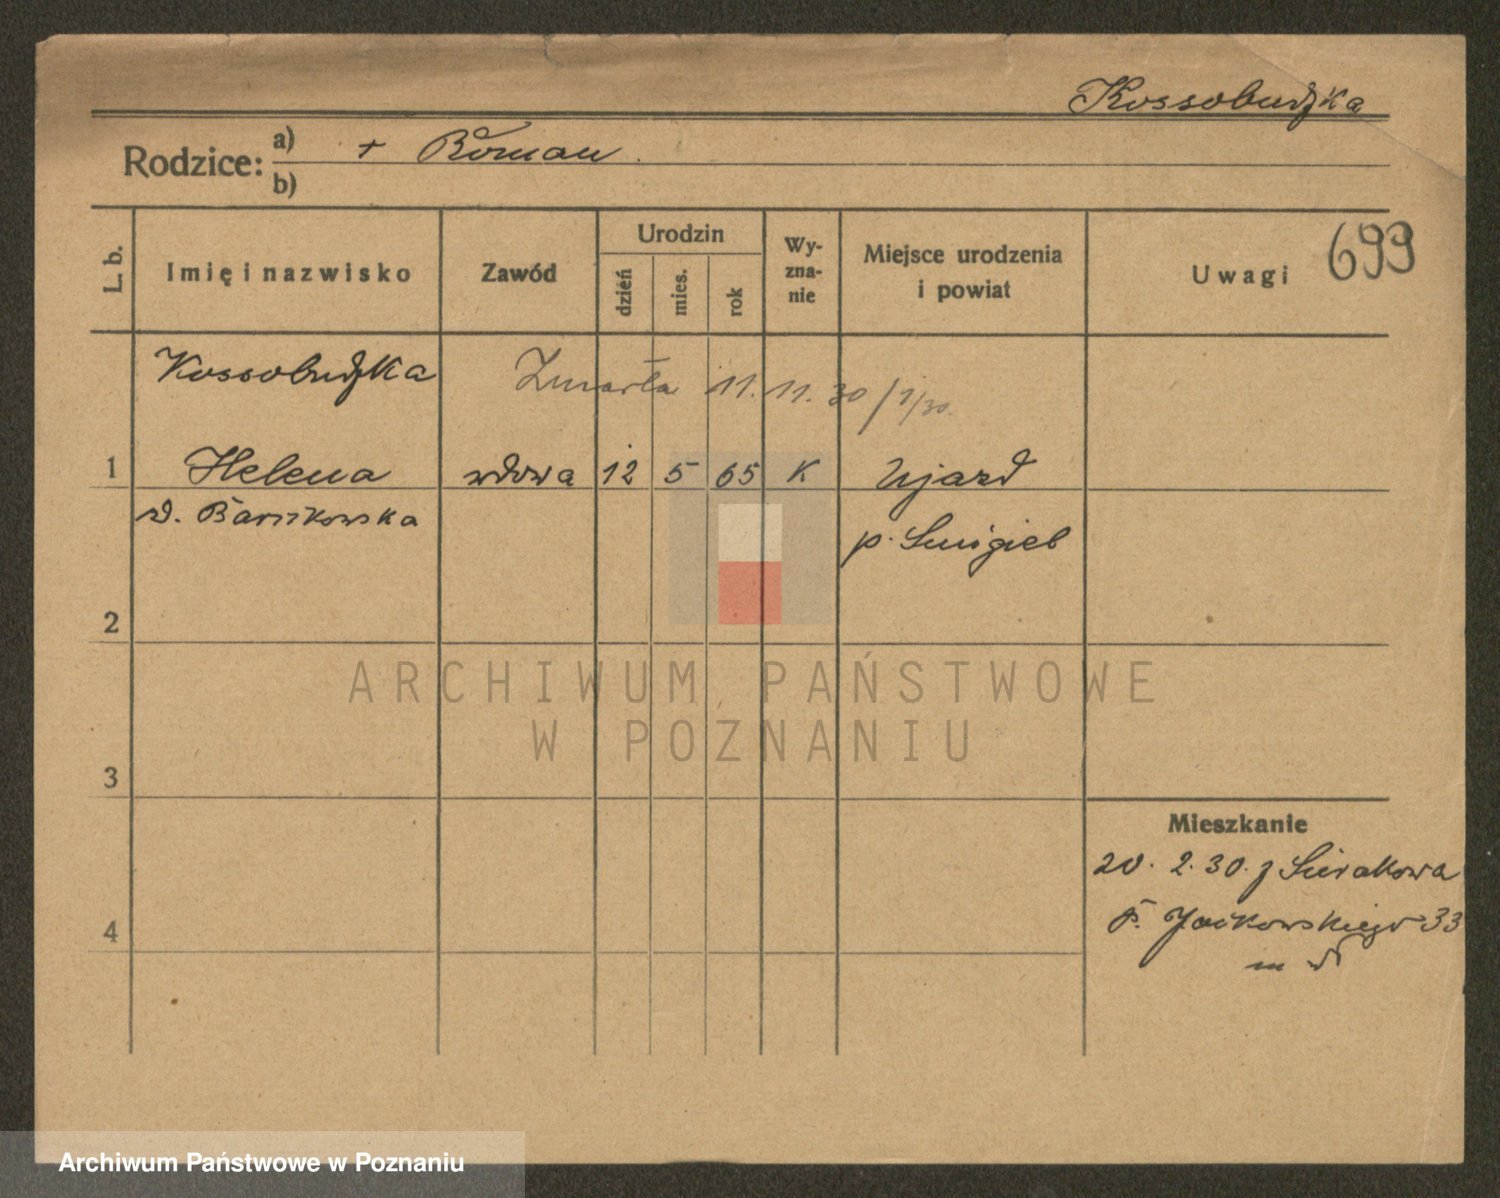 Kossobudzka
Rodzice: a) + Roman
b)
L. b. Imię i nazwisko Zawód Urodzin dzień mies. rok Wyzna-nie Miejsce urodzenia i powiat Uwagi 699
Kossobudzka Zmarła 11. 11. 30 /1/30.
1 Helena wdowa 12 5 65 K Ujazd
d. Bańkowska p. Śmigiel
2
3
Mieszkanie
20. 2. 30. z Sierakowa
4 Jackowskiego 33
m
ARCHIWUM PAŃSTWOWE
W POZNANIU
Archiwum Państwowe w Poznaniu